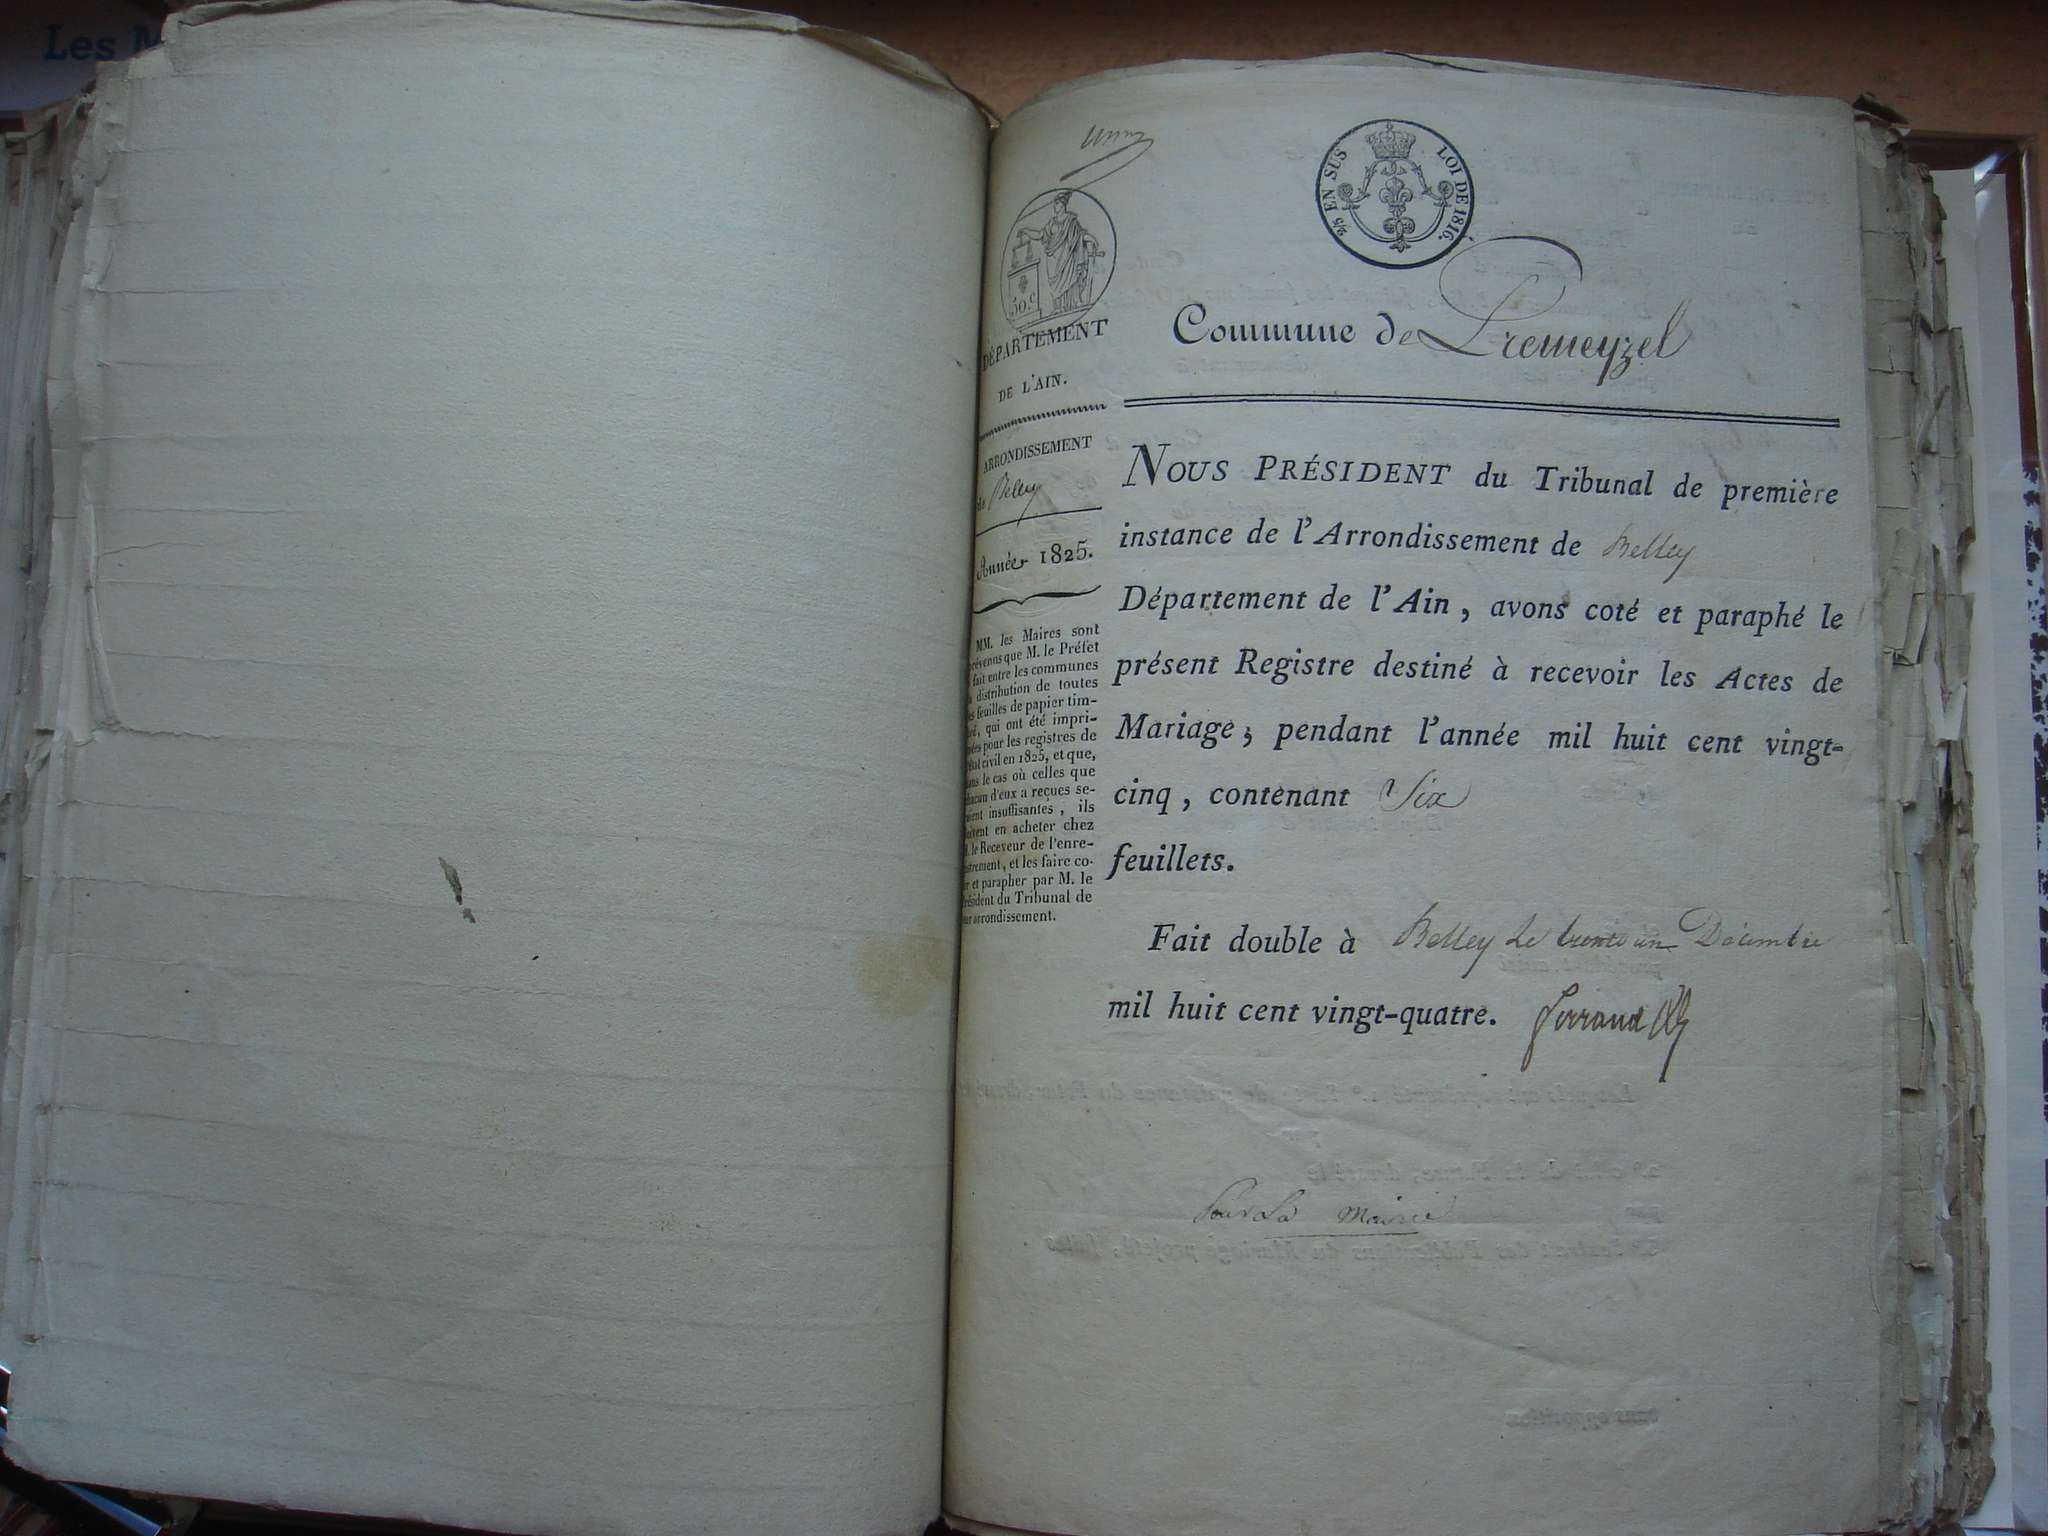 Les M
2/5 EN SUS LOI DE 1816.
50 c
DÉPARTEMENT
DE L'AIN.
ARRONDISSEMENT
de Belley
Année 1825.
MM. les Maires sont
prévenus que M. le Préfet
fait entre les communes
la distribution de toutes
les feuilles de papier tim-
bré, qui ont été impri-
mées pour les registres de
l'état civil en 1825, et que,
dans le cas où celles que
chacun d'eux a reçues se-
raient insuffisantes, ils
doivent en acheter chez
M. le Receveur de l'enre-
gistrement, et les faire co-
ter et parapher par M. le
Président du Tribunal de
leur arrondissement.
Commune de Premeyzel
NOUS PRÉSIDENT du Tribunal de première
instance de l'Arrondissement de Belley
Département de l'Ain, avons coté et paraphé le
présent Registre destiné à recevoir les Actes de
Mariage, pendant l'année mil huit cent vingt-
cinq, contenant Six
feuillets.
Fait double à Belley le trente un Décembre
mil huit cent vingt-quatre. Ferrand
Pour La Mairie